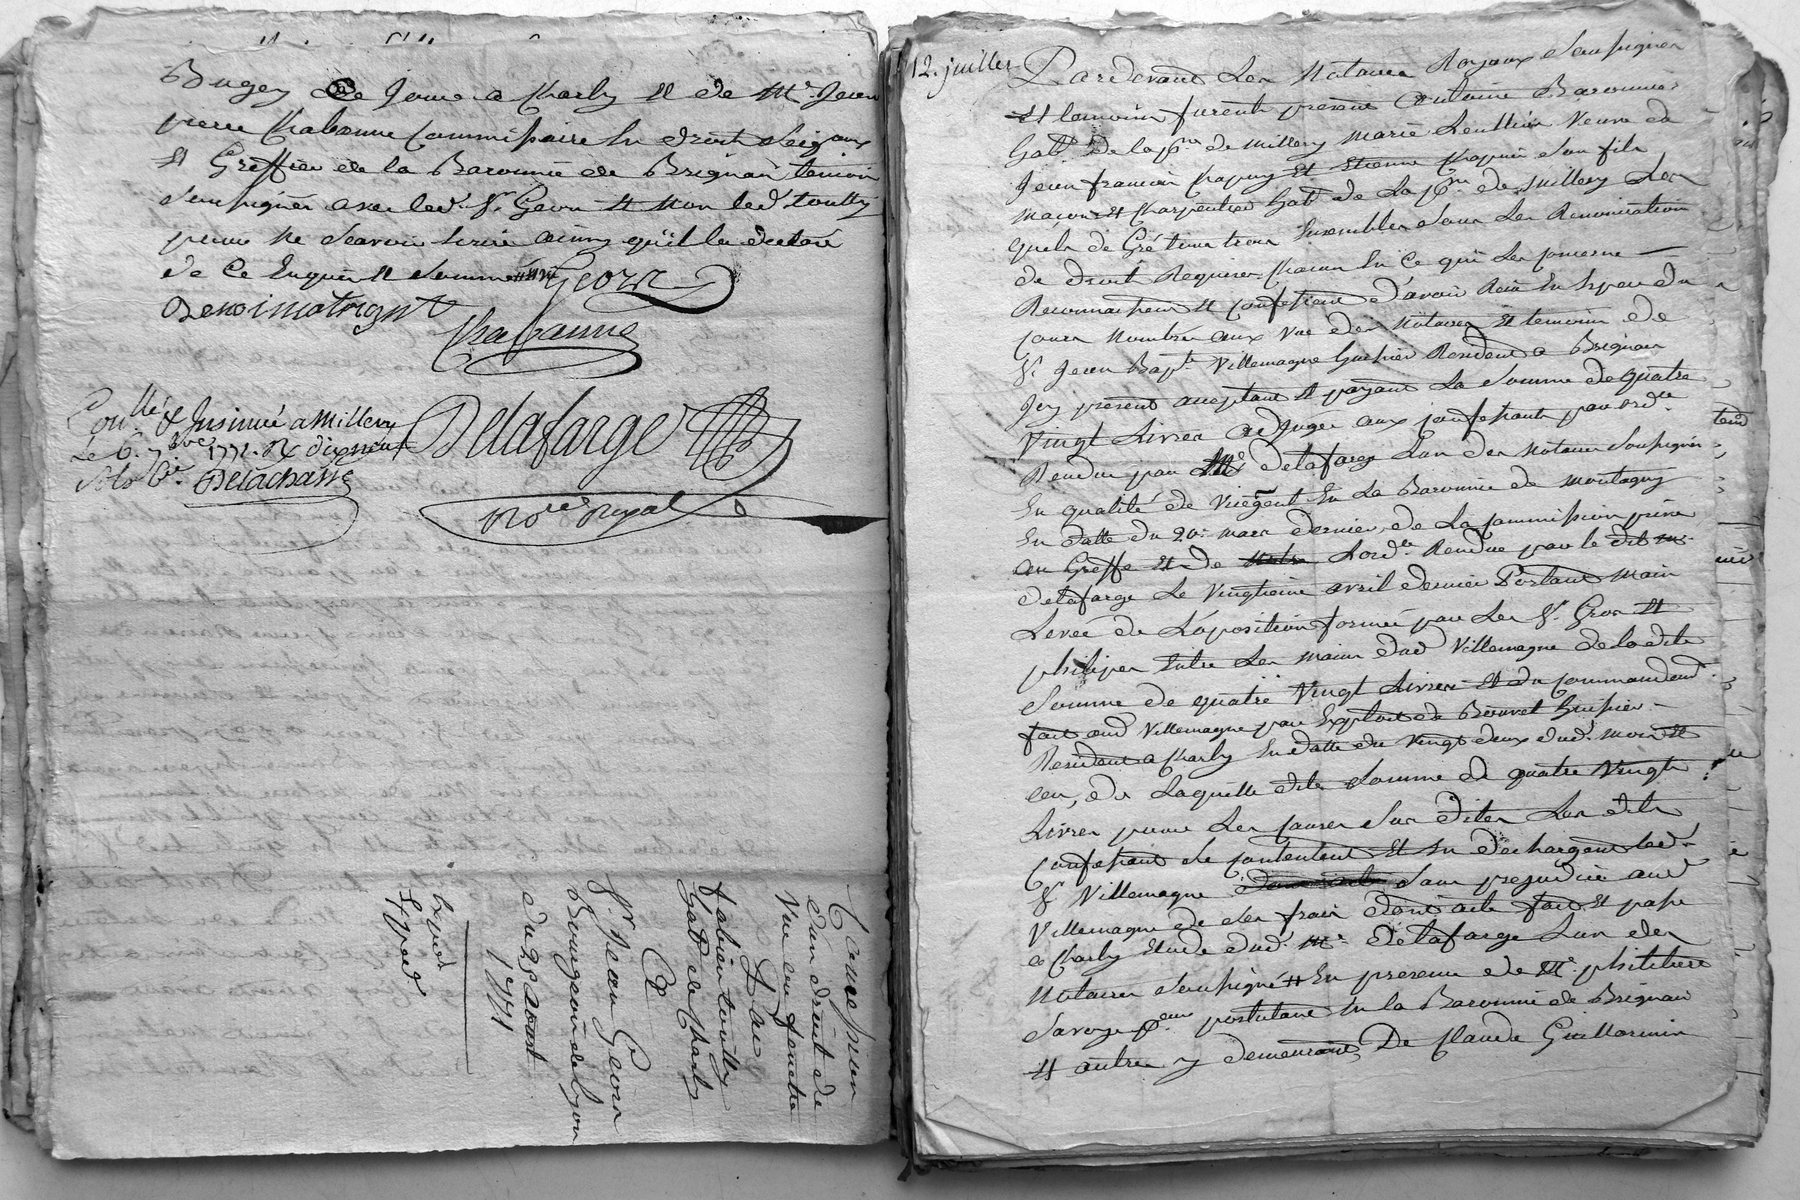 Bugey Ce Jour a Charly et de Me. Jean
pierre Chabanne Commissaire en droits Seigaux
et Greffier de la Baronnie de Brignais temoins
soussignés avec led. Sr. Geon et Non led. toully
pour ne scavoir Ecrire ainsy qu'il la declaré
de Ce Enquis et sommé Geon
Chabanne
Delafarge
Nore. Royal
Conllé & Insinué a Millery
Le 6. 7bre 1771. Rx dix neuf
sols Delachasse
d'un droit de
Vue ou fenetre
Par
fabien toully
habt. de Charly
a
Sr. Jean Geon
Bourgeois de Lyon
du 29 aoust
1771
Expéd.
12. juillet
Pardevant Les Notaires Royaux Soussignés
et temoins furent presens Antoine Baronnier
habt. de la psse de Millery Marie Veuve de
Jean francois Chapuy et Etienne Chapuis son fils
maçon et Charpentier habt de La psse de Millery Les
quels de Gré tous trois Ensembles sous Les Renonciations
de droit Requises chacun En Ce qui Les concerne
Reconnaissent et confessent d'avoir Reçu En Espece du
cours Nombrée aux vue des Notaires et temoins de
Sr. Jean Bapt. Villemagne huissier Resident a Brignais
Icy present acceptant et payant La somme de quatre
Vingt Livres adjugée aux confessants par orde.
Rendue par Me Delafarge L'un des Notaires Soussignés
En qualité de Vicegent En La Baronnie de Montagny
En datte du 20. mars dernier, de La commission prise
au Greffe et de L'orde. Rendue par le dit me.
Delafarge Le Vingtieme avril dernier Portant Main
Levée de L'oposition formée par Les Sr. Gros et
philipes Entre Les mains dud Villemagne de la dite
Somme de quatre Vingt Livres et du commandemt.
fait aud Villemagne par Exploit de Bouvet huissier
Residant a Charly En datte du Vingt deux dud. mois et
an, de Laquelle dite Somme de quatre Vingt
Livres pour Les causes Sus dites Les dits
Confessants se contentent et En dechargent led.
Sr. Villemagne sans prejudice aud
Villemagne de ses frais dont acte fait et passé
a Charly Etude dud. Me. Delafarge L'un des
Notaires Soussignés En presence de Me. philibert
Savoye pr. postulant En la Baronnie de Brignais
et autres y demeurant, De Claude Guillermin